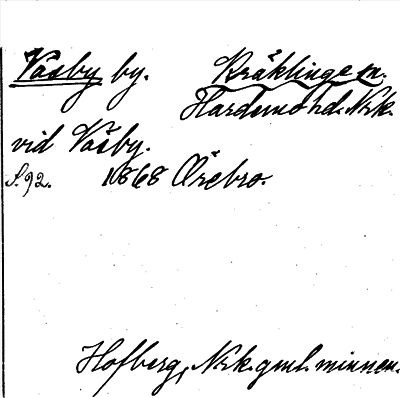 Väsby by. Kräklinge sn.
Hardemo hd. Nrk.
vid Väsby.
S. 92. 1868 Örebro.
Hofberg, Nrk. gml. minnen.